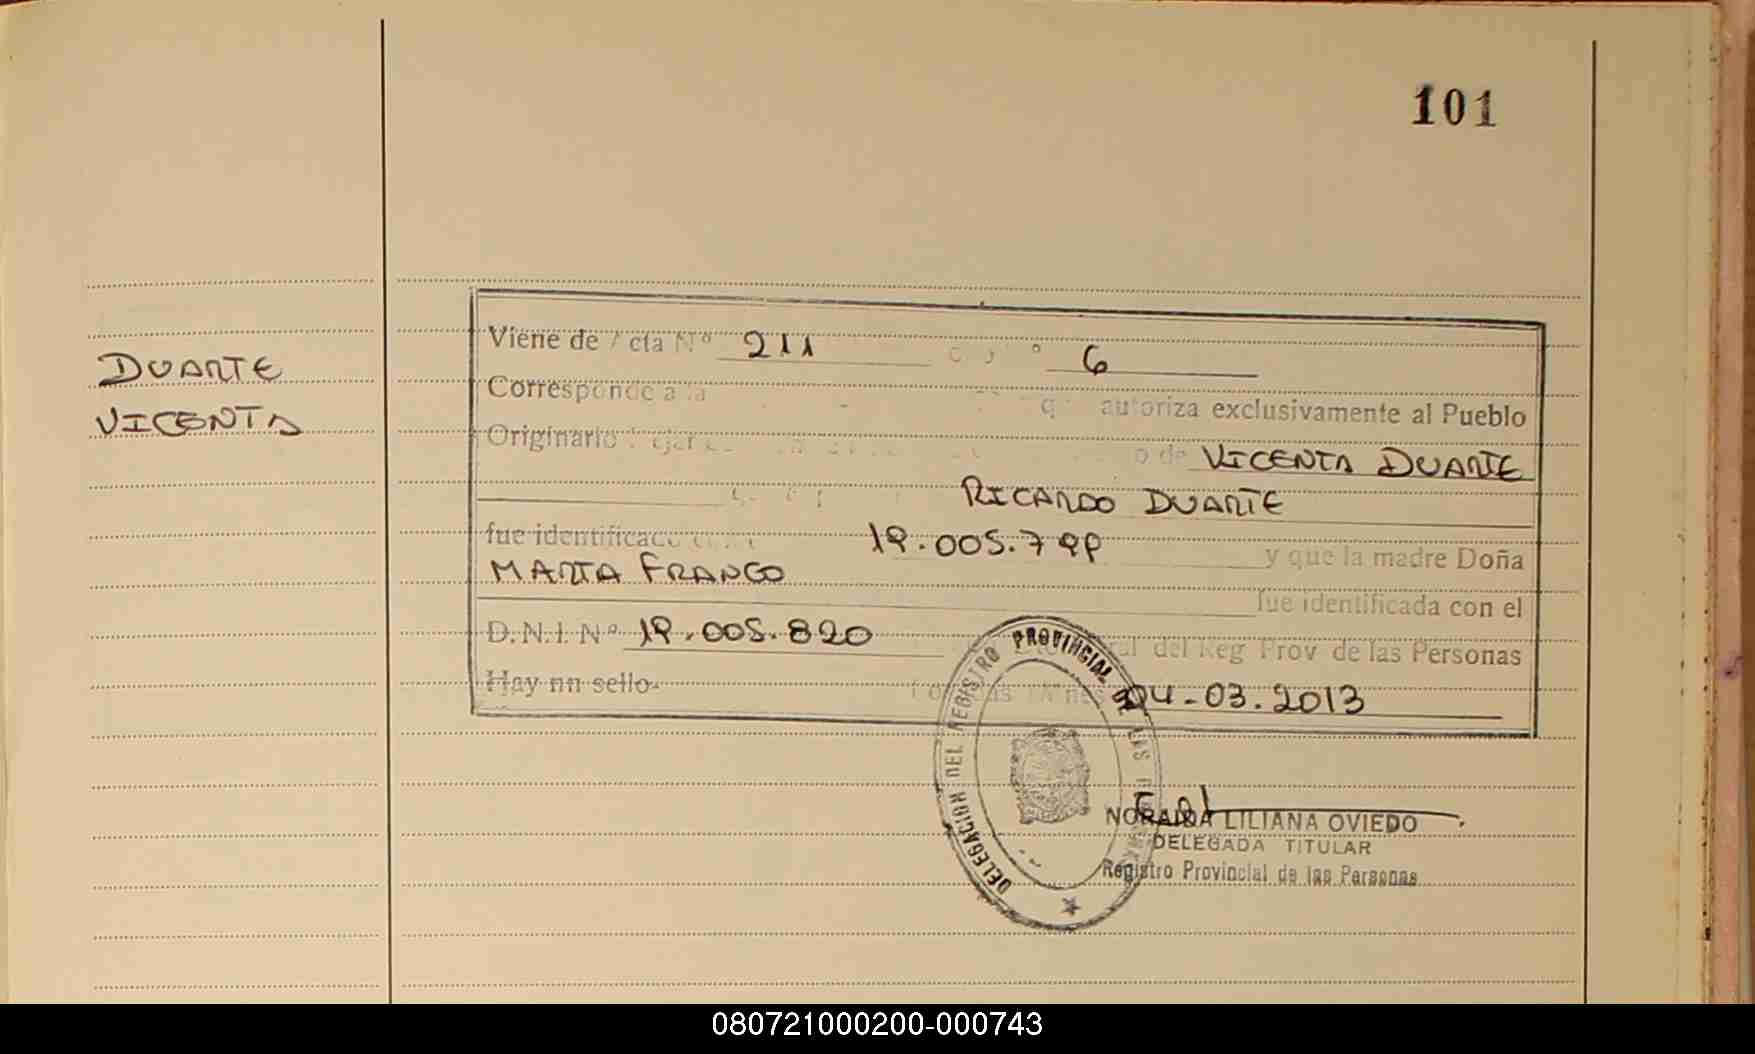 101
DUARTE
VICENTA
Viene de Acta Nº 211 6
Corresponde a la autoriza exclusivamente al Pueblo
Originario de VICENTA DUARTE
RICARDO DUARTE
fue identificado 19.005.799 y que la madre Doña
MARTA FRANCO
fue identificada con el
D.N.I. Nº 19.005.820 del Reg Prov de las Personas
Hay un sello.
04-03.2013
DELEGACION DEL REGISTRO PROVINCIAL DE LAS
NORAIDA LILIANA OVIEDO
DELEGADA TITULAR
Registro Provincial de las Personas
080721000200-000743